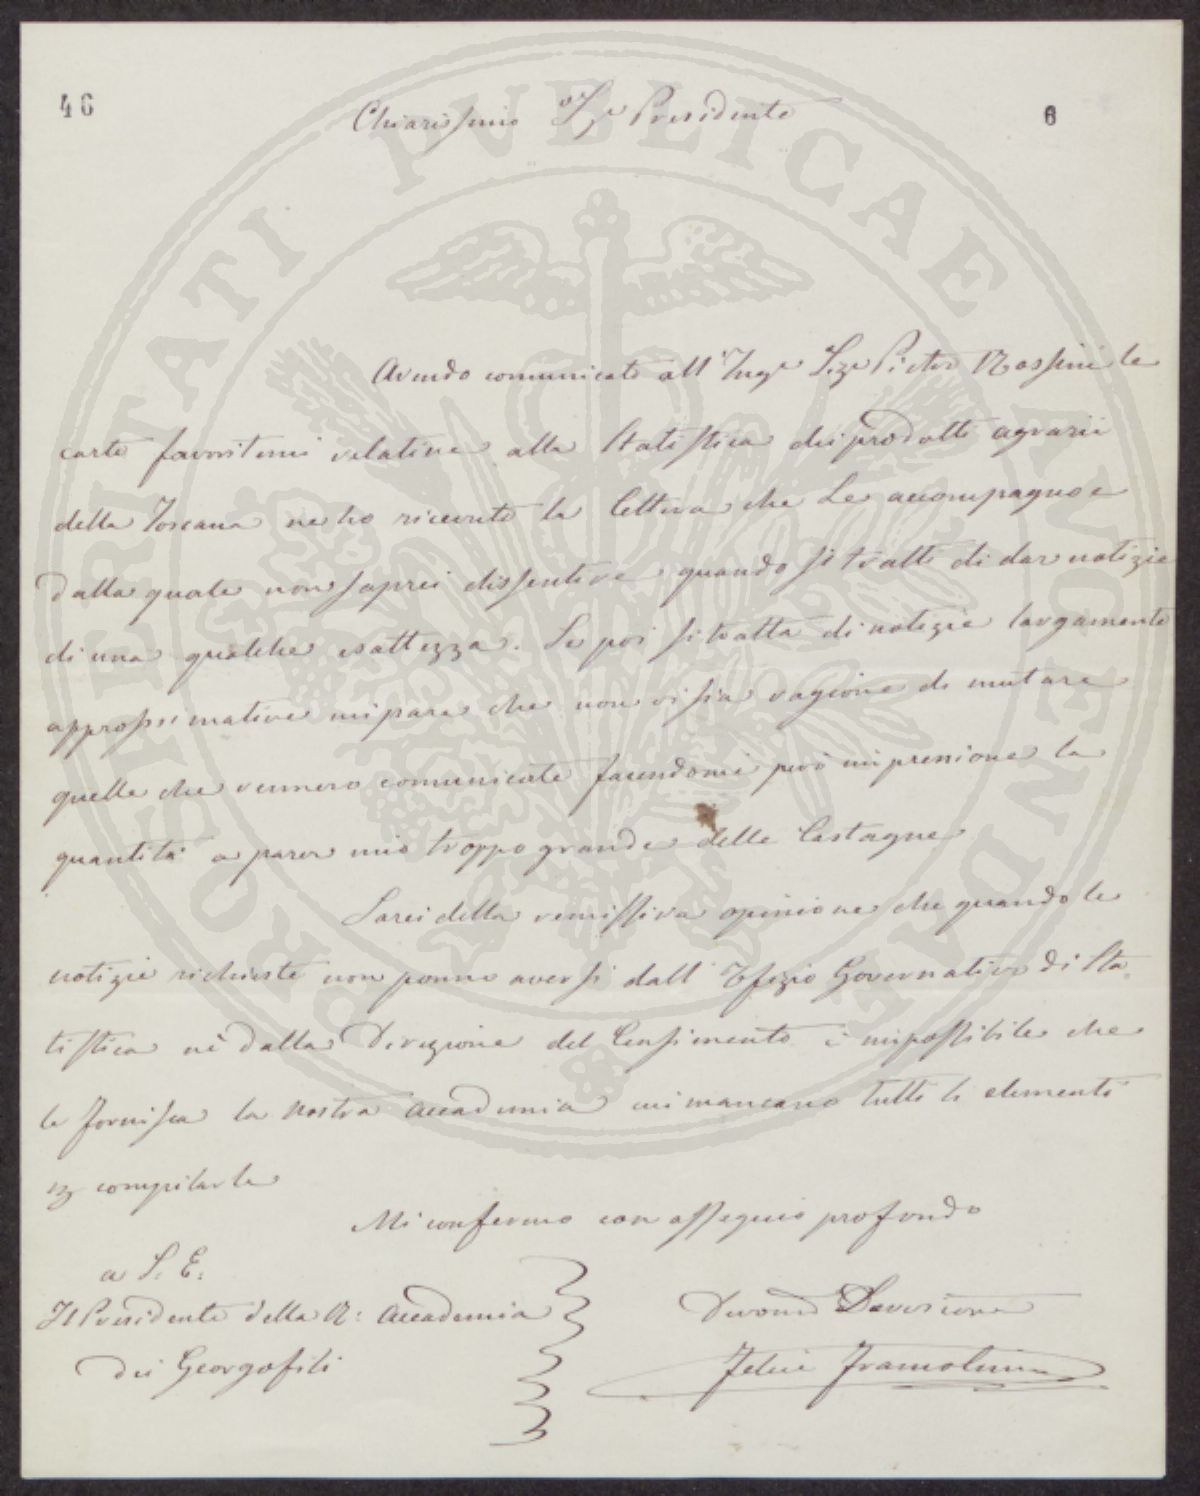 46
6
Chiarissimo Sig.r Presidente
Avendo comunicato all'Ing.e Sig.r Pietro Rossini le
carte favoritemi relative alla Statistica dei prodotti agrarii
della Toscana ne ho ricevuto la lettera che Le accompagno e
dalla quale non saprei dissentire quando si tratti di dar notizie
di una qualche esattezza. Se poi si tratta di notizie largamente
approssimative mi pare che non vi sia ragione di mutare
quelle che vennero comunicate facendomi però impressione la
quantità a parer mio troppo grande delle Castagne
Sarei della remissiva opinione che quando le
notizie richieste non ponno aversi dall'Ufizio Governativo di Sta
tistica nè dalla Direzione del Censimento è impossibile che
le fornisca la nostra Accademia cui mancano tutti li elementi
p compilarle
Mi confermo con ossequio profondo
a S. E.
Il Presidente della R: Accademia
dei Georgofili
Devono Servitore
Felice Francolini
PROSPERITATI PUBLICAE AUGENDAE